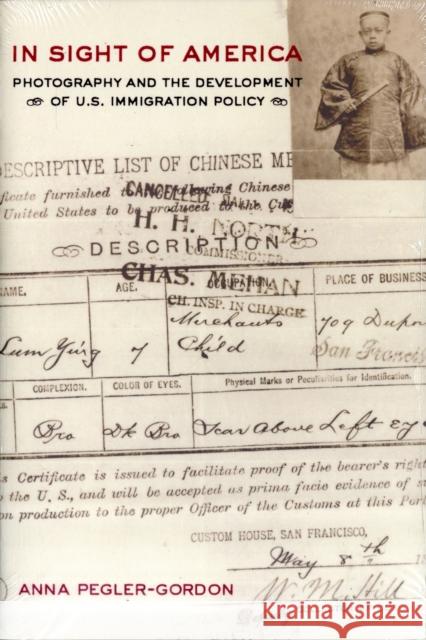 IN SIGHT OF AMERICA
PHOTOGRAPHY AND THE DEVELOPMENT
OF U.S. IMMIGRATION POLICY
DESCRIPTIVE LIST OF CHINESE ME
ficate furnished Chinese
United States to be produced to the
CANCELLED
H. H. NORTH
COMMISSIONER
DESCRIPTION
CHAS. MEHAN
CH. INSP. IN CHARGE
NAME. AGE. OCCUPATION PLACE OF BUSINESS
Lum Ying 7 Merchants Child 709 Dupon
San Francis
COMPLEXION. COLOR OF EYES. Physical Marks or Peculiarities for Identification.
Bro Dk Bro Scar Above Left Ey
s Certificate is issued to facilitate proof of the bearer's right
the U. S., and will be accepted as prima facie evidence of
on production to the proper Officer of the Customs at this Port
CUSTOM HOUSE, SAN FRANCISCO,
May 8th
ANNA PEGLER-GORDON